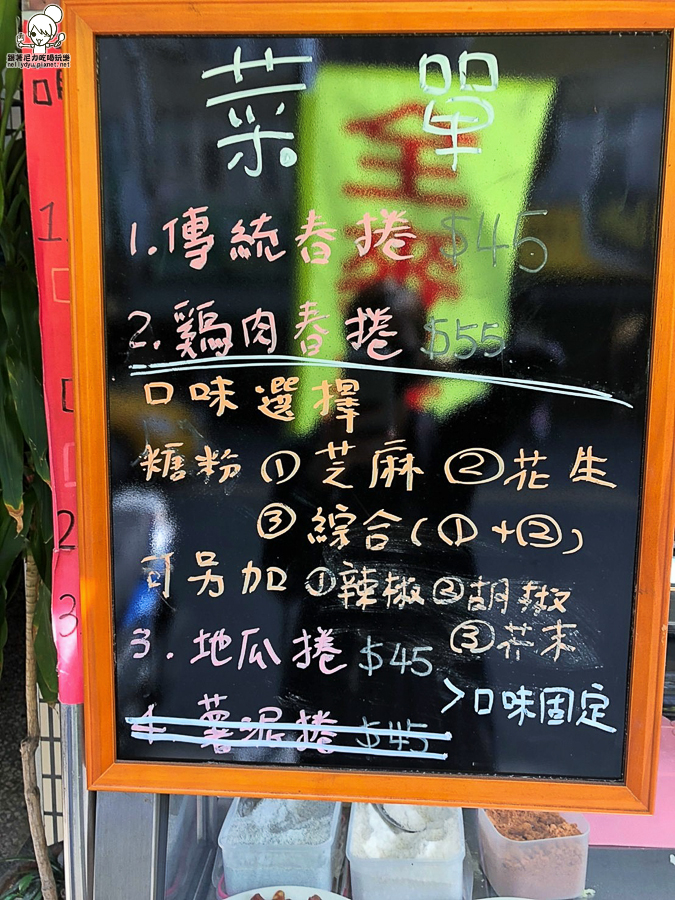 跟著尼力吃喝玩樂
nellydyu.pixnet.net
菜單
1.傳統春捲 $45
2.鷄肉春捲 $55
口味選擇
糖粉 ①芝麻 ②花生
③綜合(①+②)
可另加 ①辣椒 ②胡椒
③芥末
3.地瓜捲 $45
>口味固定
4.薯泥捲 $45
全
1.
2
3